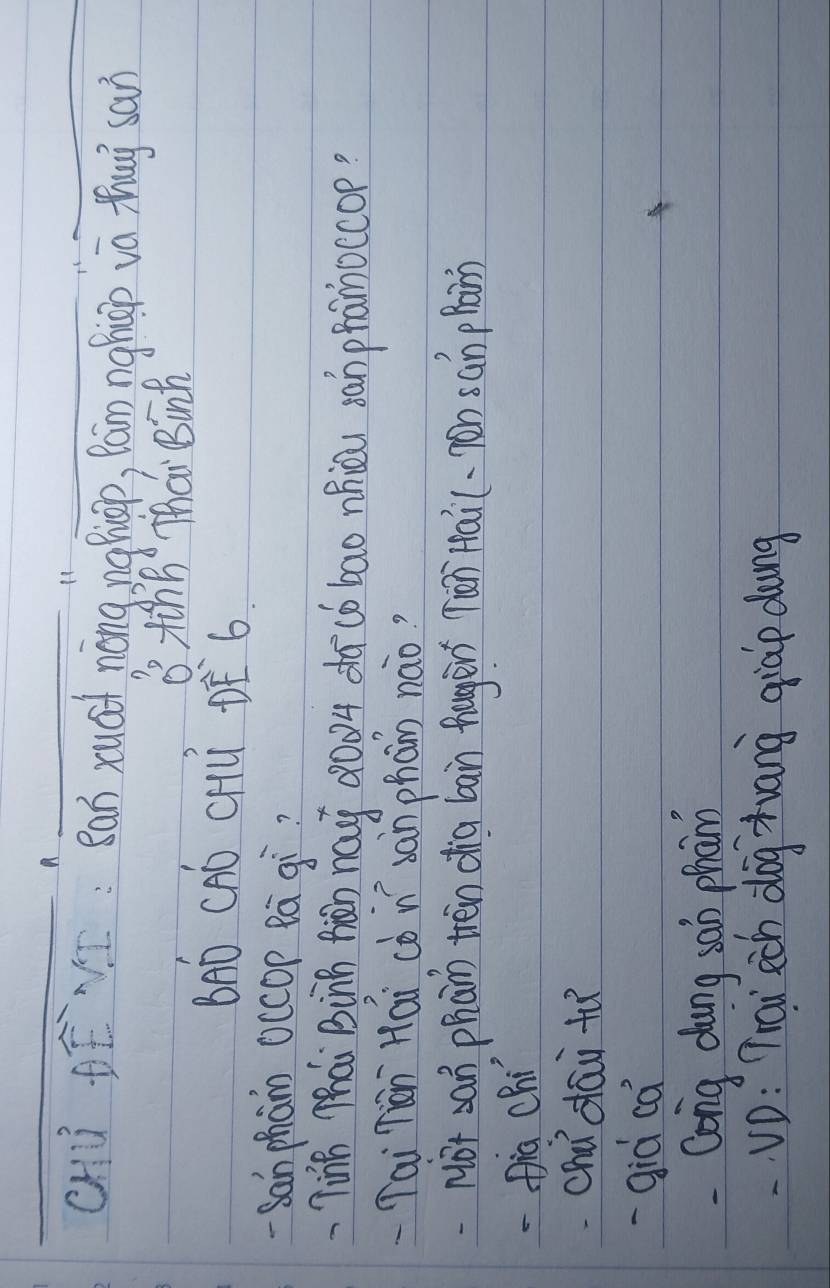 CHỦ ĐỀ VI : Sản xuất nông nghiệp, lâm nghiệp và thuỷ sản
ở tỉnh Thái Bình
BÁO CÁO CHỦ ĐỀ 6.
- Sản phẩm OCCOP là gì?
- Tỉnh Thái Bình hiện nay 2024 đã có bao nhiêu sản phẩm OCCOP?
- Tại Tiền Hải có n~ sản phẩm nào?
- Một sản phẩm trên địa bàn huyện Tiền Hải (- Tên sản phẩm
- Địa chỉ
- Chủ đầu tư
- giá cả
- Công dụng sản phẩm
- VD: Trại ếch đồng trang giáp dung